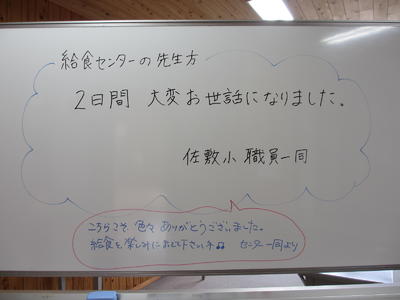 給食センターの先生方
2日間 大変お世話になりました。
佐敷小 職員一同
こちらこそ 色々ありがとうございました。
給食を楽しみにおして下さいネ♫ センター一同より